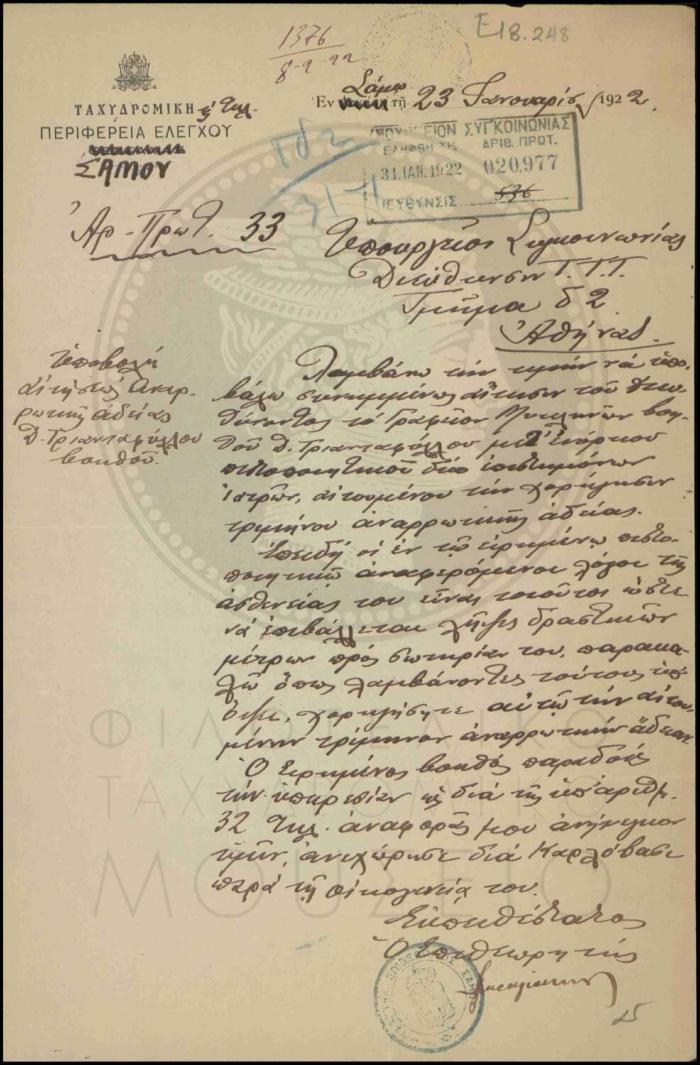 1376
8-2-22
Ε18.248
Ἐν Σάμῳ τῇ 23 Ἰανουαρίου 1922
ΤΑΧΥΔΡΟΜΙΚΗ & Τηλ.
ΠΕΡΙΦΕΡΕΙΑ ΕΛΕΓΧΟΥ
ΣΑΜΟΥ
ΥΠΟΥΡΓΕΙΟΝ ΣΥΓΚΟΙΝΩΝΙΑΣ
ΕΛΗΦΘΗ ΤΗ ΑΡΙΘ. ΠΡΩΤ.
31.ΙΑΝ.1922 020,977
ΔΙΕΥΘΥΝΣΙΣ 536
Ἀρ-Πρωτ. 33
Ὑπουργεῖον Συγκοινωνίας
Διεύθυνσιν Τ.Τ.Τ.
Τμῆμα δ2
Ἀθήνας
Ὑποβολὴ
αἰτήσεως ἀναρ-
ρωτικῆς ἀδείας
Δ. Τριανταφύλλου
βοηθοῦ.
Λαμβάνω τὴν τιμὴν νὰ ὑπο-
βάλω συνημμένως αἴτησιν τοῦ διευ-
θύνοντος τὸ Γραφεῖον Μυτιληνῶν βοη-
θοῦ Δ. Τριανταφύλλου μετ' ἐνόρκου
πιστοποιητικοῦ δύο ἐπιστημόνων
ἰατρῶν, αἰτουμένου τὴν χορήγησιν
τριμήνου ἀναρρωτικῆς ἀδείας.
Ἐπειδὴ οἱ ἐν τῷ εἰρημένῳ πιστο-
ποιητικῷ ἀναφερόμενοι λόγοι τῆς
ἀσθενείας του εἶναι τοιοῦτοι ὥστε
νὰ ἐπιβάλλεται λῆψις δραστικῶν
μέτρων πρὸς σωτηρίαν του, παρακα-
λῶ ὅπως λαμβάνοντες τούτους ὑπ'
ὄψει, χορηγήσητε αὐτῷ τὴν αἰτου-
μένην τρίμηνον ἀναρρωτικὴν ἄδειαν.
Ὁ εἰρημένος βοηθὸς παραδοὺς
τὴν ὑπηρεσίαν ὡς διὰ τῆς ὑπ' ἀριθμ.
32 τηλ. ἀναφορᾶς μου ἀνήνεγκον
ὑμῖν, ἀνεχώρησε διὰ Καρλόβασι
παρὰ τῇ οἰκογενείᾳ του.
Εὐπειθέστατος
Ὁ Ἐπιθεωρητὴς
ΦΙΛΟΤΕΛΙΚΟ
ΤΑΧΥΔΡΟΜΙΚΟ
ΜΟΥΣΕΙΟ